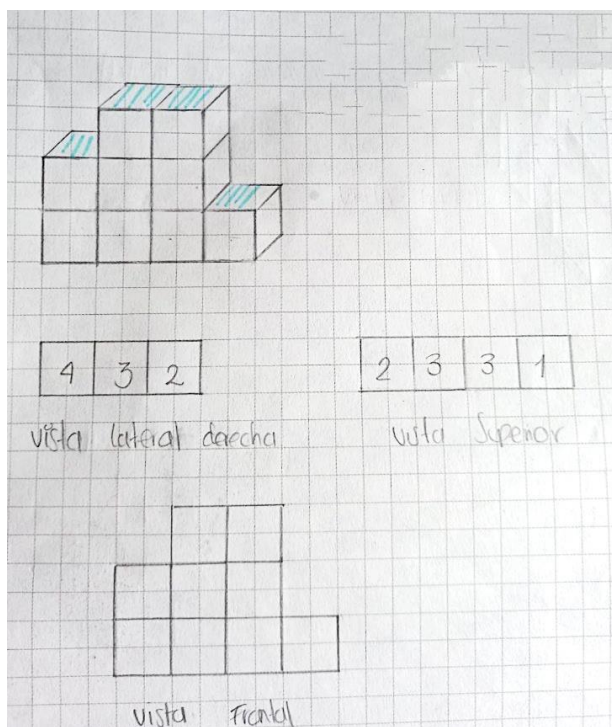 4 3 2
2 3 3 1
vista lateral derecha
vista Superior
Vista Frontal